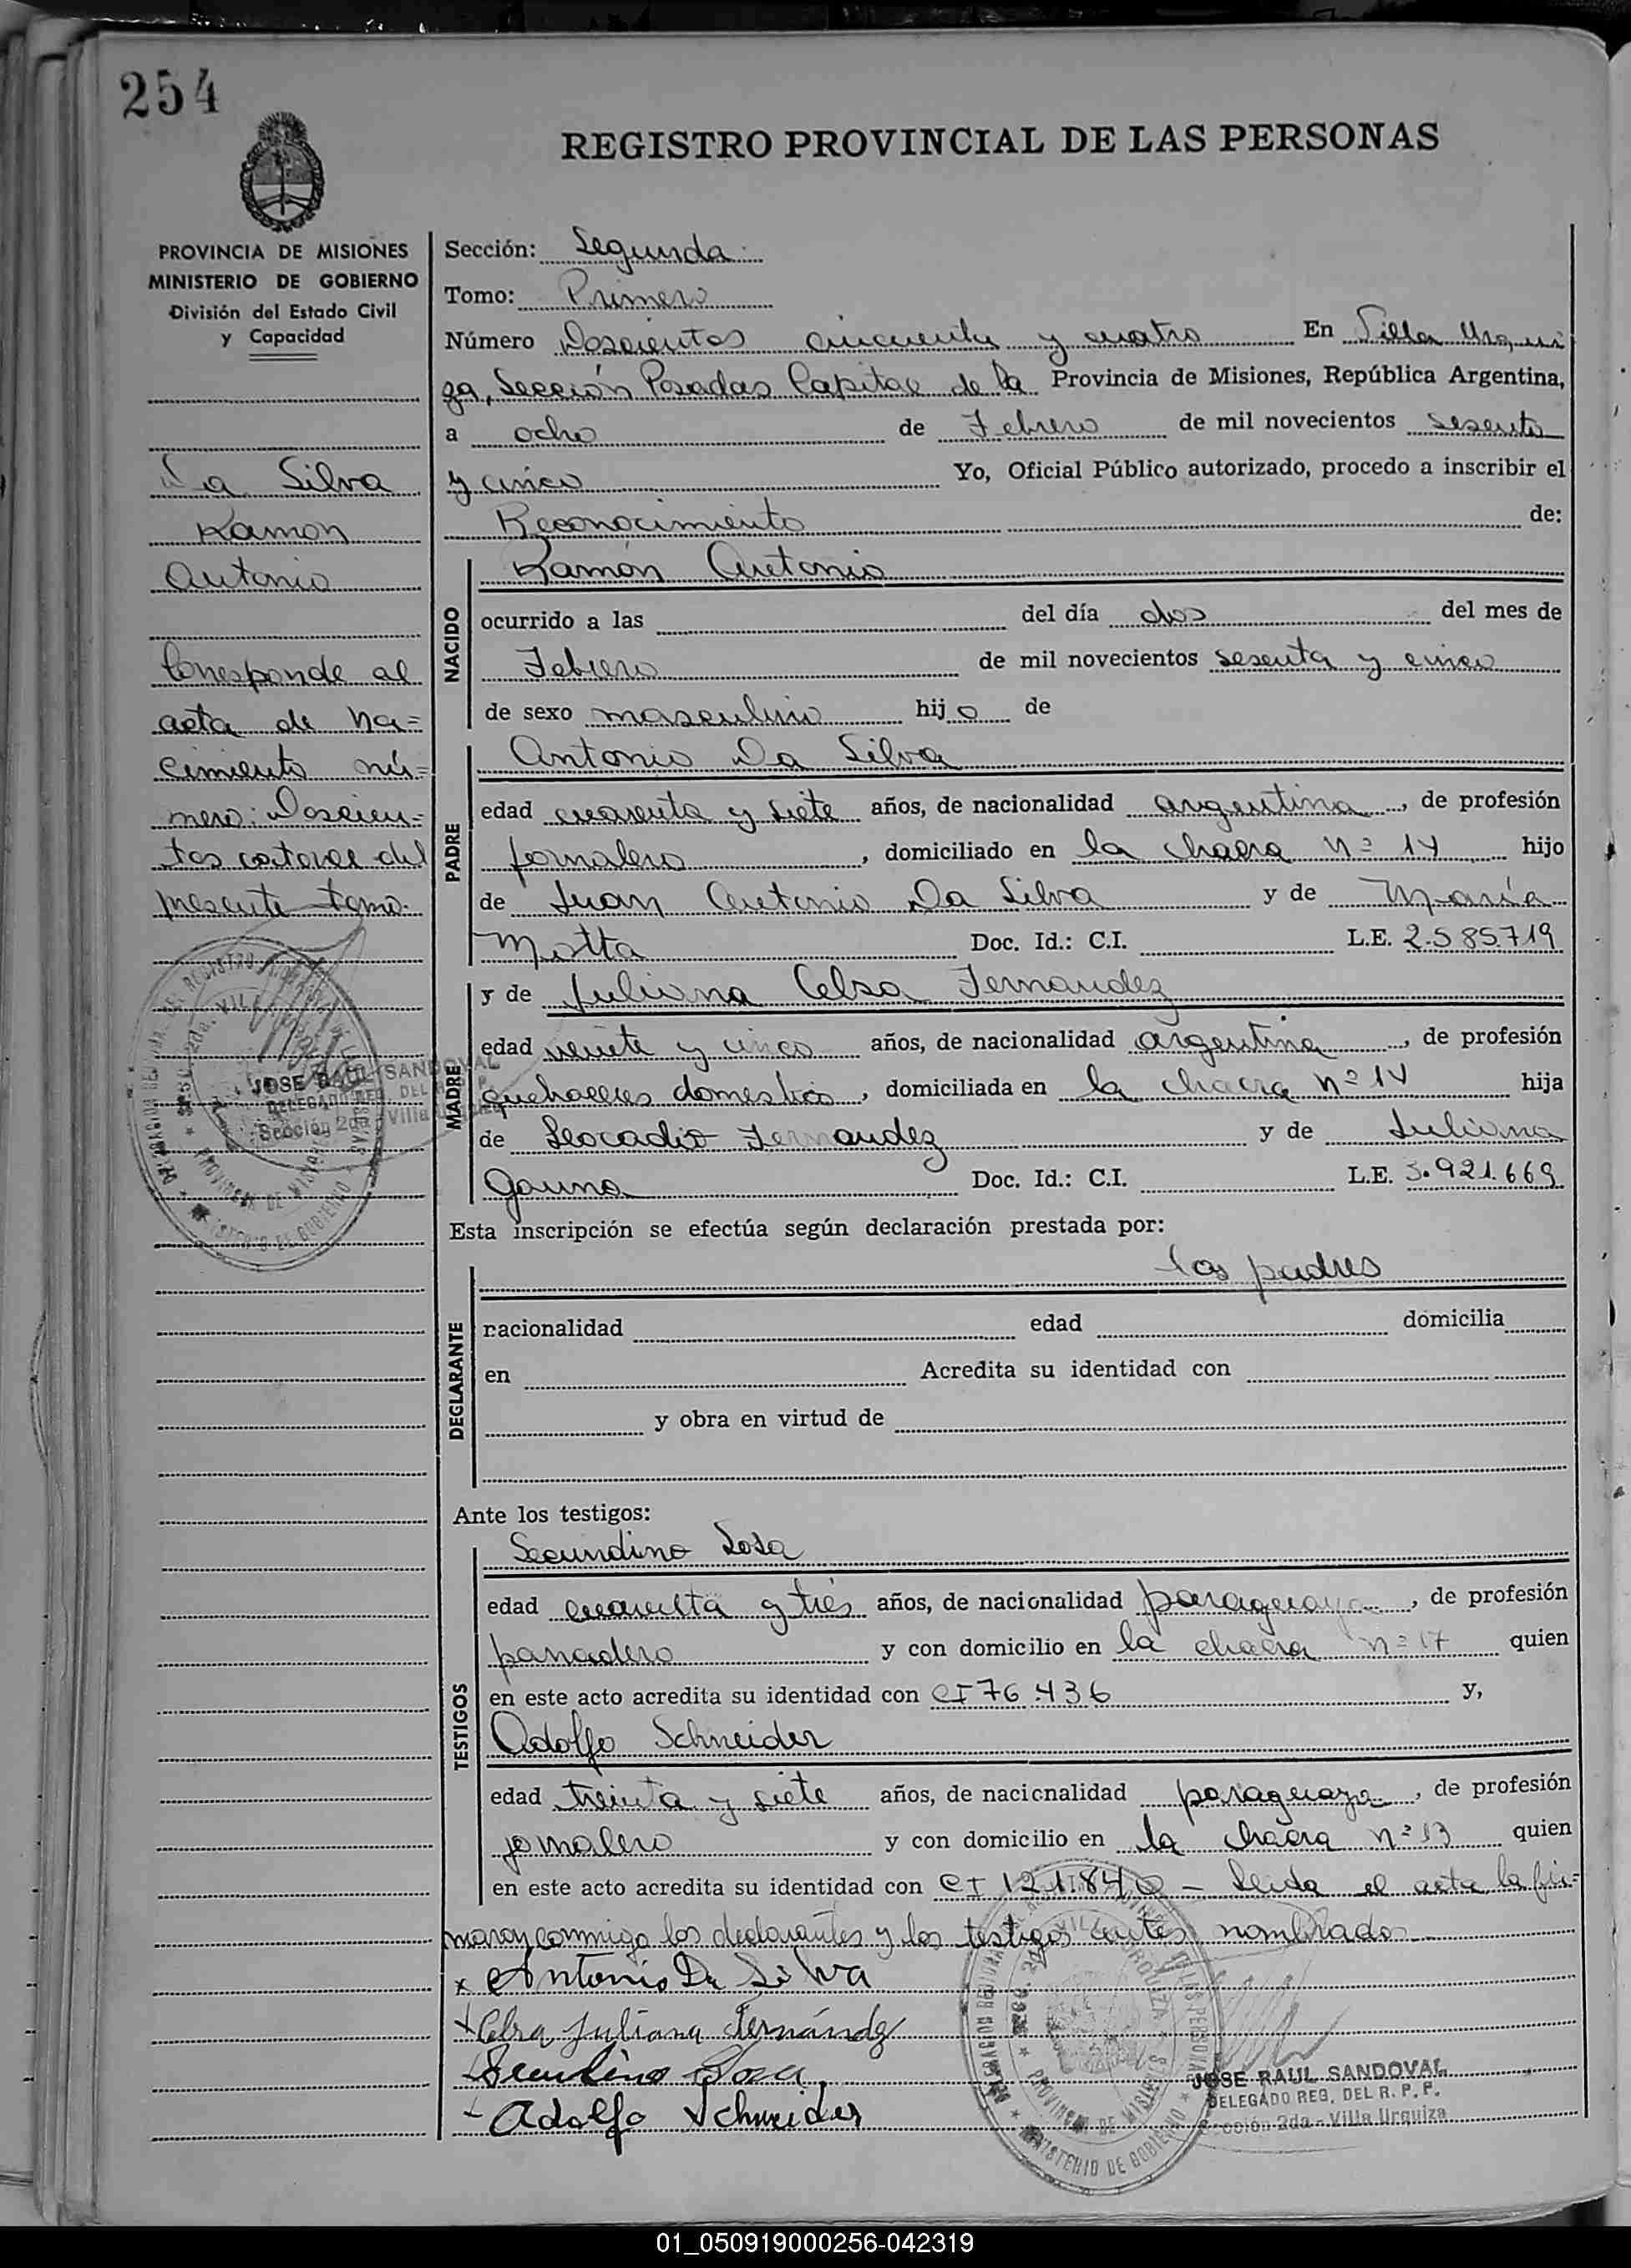 254
REGISTRO PROVINCIAL DE LAS PERSONAS
PROVINCIA DE MISIONES
MINISTERIO DE GOBIERNO
División del Estado Civil
y Capacidad
Da Silva
Ramon
Antonio
Corresponde al
acta de na=
cimiento nú=
mero: Doscien=
tos catorce del
presente tomo.
JOSE RAUL SANDOVAL
DELEGADO REG. DEL R. P. P.
Sección 2da - Villa Urquiza
Sección: Segunda
Tomo: Primero
Número Doscientos cincuenta y cuatro En Villa Urqui
za, Sección Posadas Capital de la Provincia de Misiones, República Argentina,
a ocho de Febrero de mil novecientos sesenta
y cinco Yo, Oficial Público autorizado, procedo a inscribir el
Reconocimiento de:
NACIDO
Ramón Antonio
ocurrido a las del día dos del mes de
Febrero de mil novecientos sesenta y cinco
de sexo masculino hijo de
PADRE
Antonio Da Silva
edad cuarenta y siete años, de nacionalidad argentina, de profesión
jornalero, domiciliado en la chacra nº 14 hijo
de Juan Antonio Da Silva y de María
Motta Doc. Id.: C.I. L.E. 2.585.719
MADRE
y de Juliana Celsa Fernandez
edad veinte y cinco años, de nacionalidad argentina, de profesión
quehaceres domesticos, domiciliada en la chacra nº 14 hija
de Leocadio Fernandez y de Juliana
Gauna Doc. Id.: C.I. L.E. 3.921.669
Esta inscripción se efectúa según declaración prestada por:
los padres
DECLARANTE
nacionalidad edad domicilia
en Acredita su identidad con
y obra en virtud de
Ante los testigos:
TESTIGOS
Secundino Sosa
edad cuarenta y tres años, de nacionalidad paraguaya, de profesión
panadero y con domicilio en la chacra nº 17 quien
en este acto acredita su identidad con CI 76.436 y,
Adolfo Schneider
edad treinta y siete años, de nacionalidad paraguaya, de profesión
jornalero y con domicilio en la chacra nº 13 quien
en este acto acredita su identidad con CI 121.840 – Leida el acta, la fir=
maron conmigo los declarantes y los testigos antes nombrados
x Antonio Da Silva
Celsa Juliana Fernández
Secundino Sosa
Adolfo Schneider
JOSE RAUL SANDOVAL
DELEGADO REG. DEL R. P. P.
Sección 2da - Villa Urquiza
01_050919000256-042319